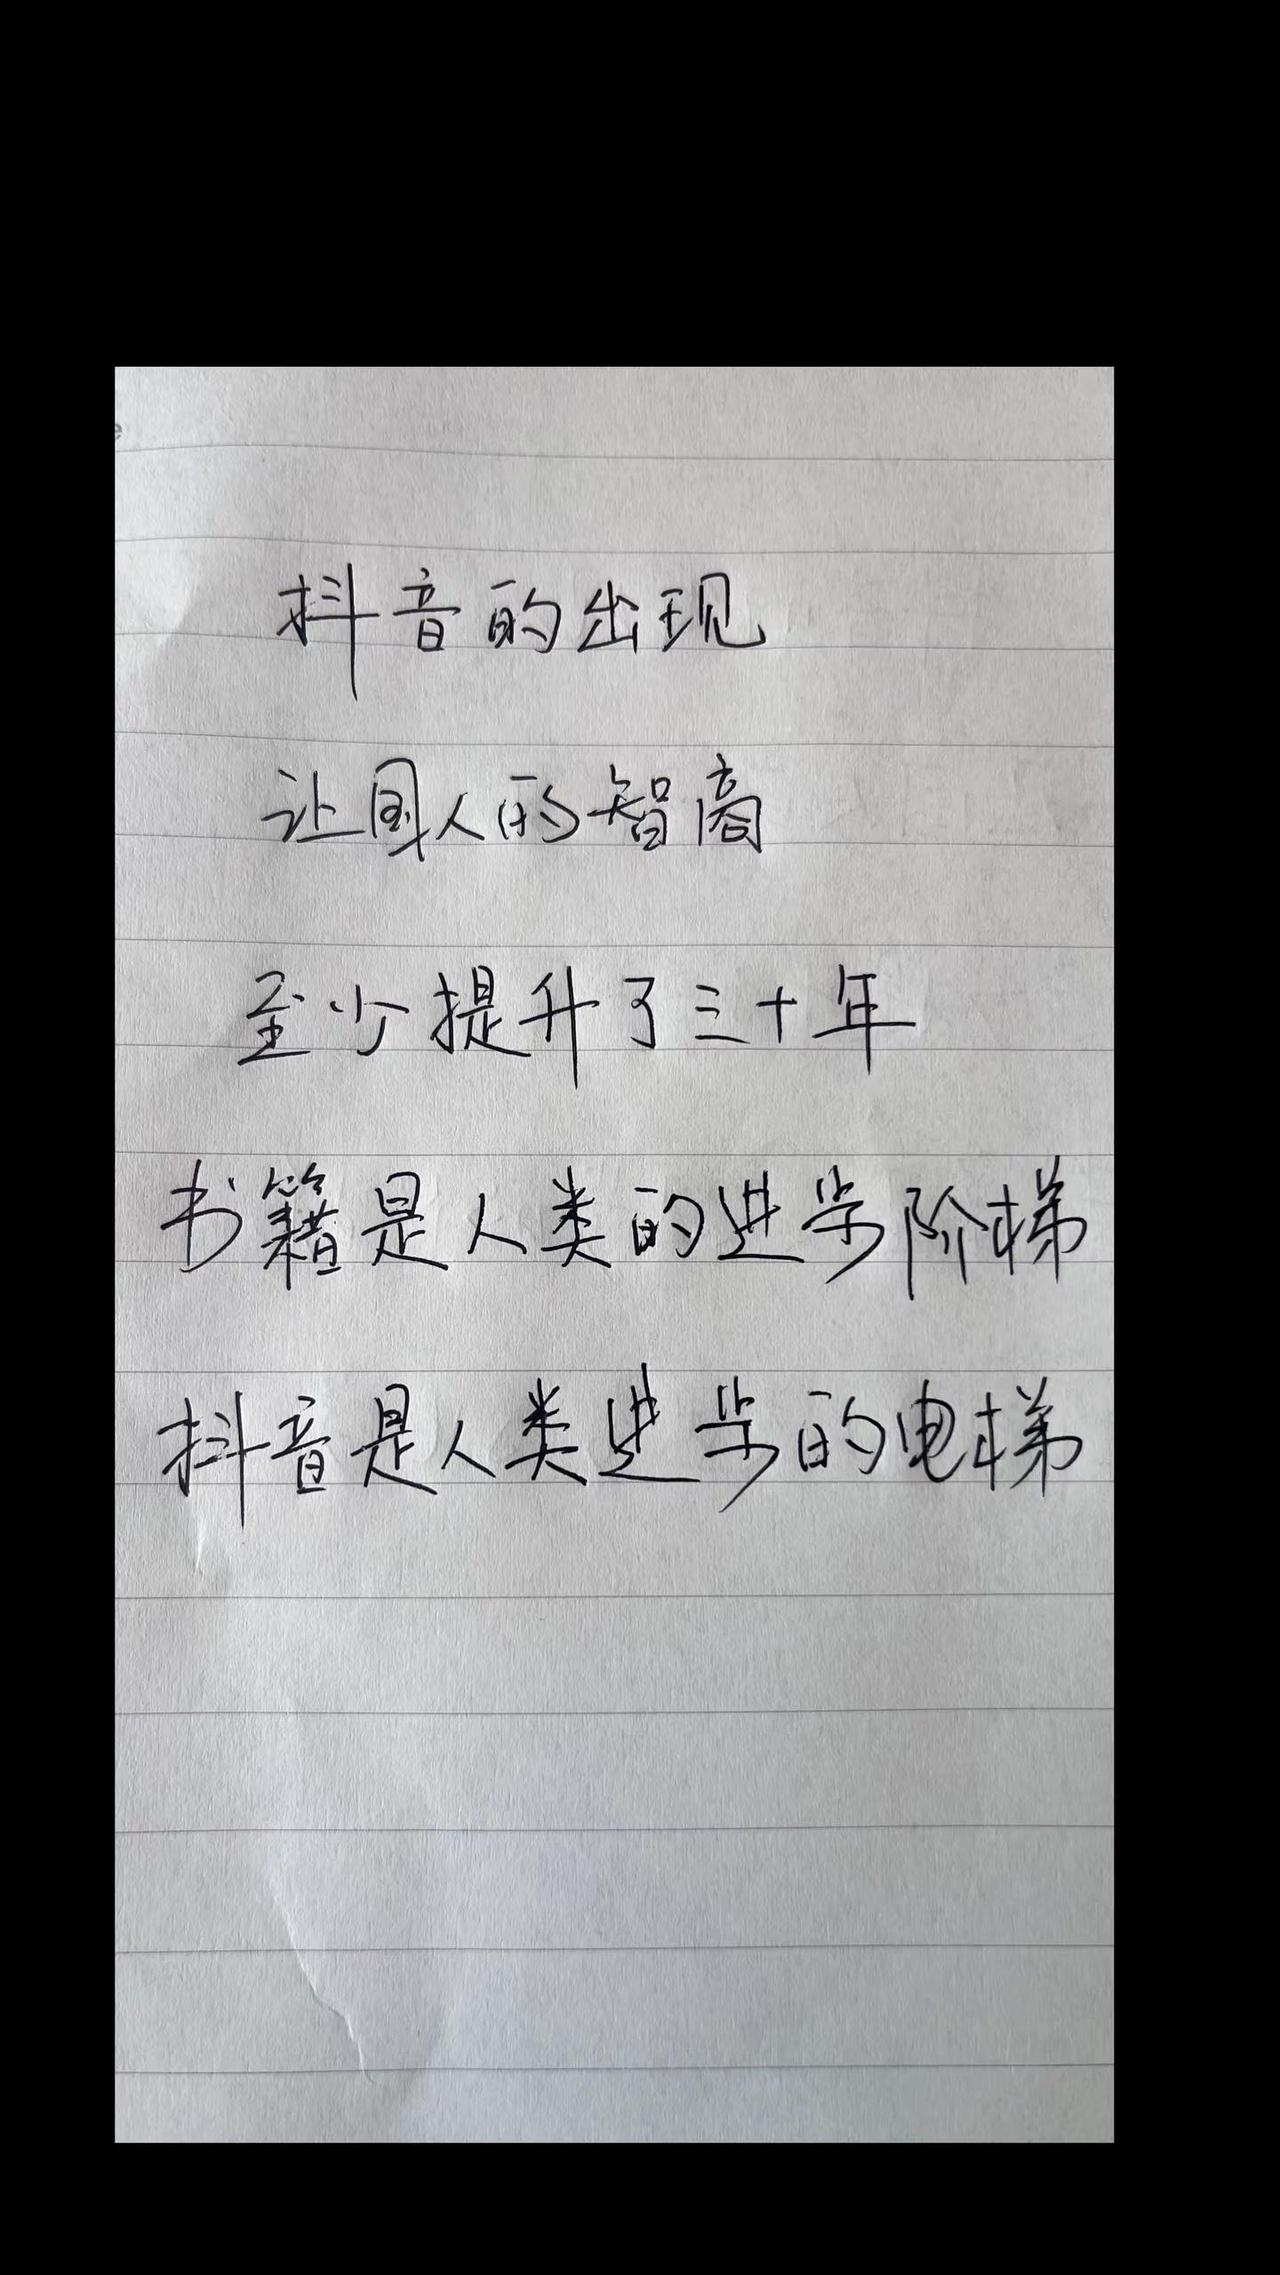 抖音的出现
让国人的智商
至少提升了三十年
书籍是人类的进步阶梯
抖音是人类进步的电梯